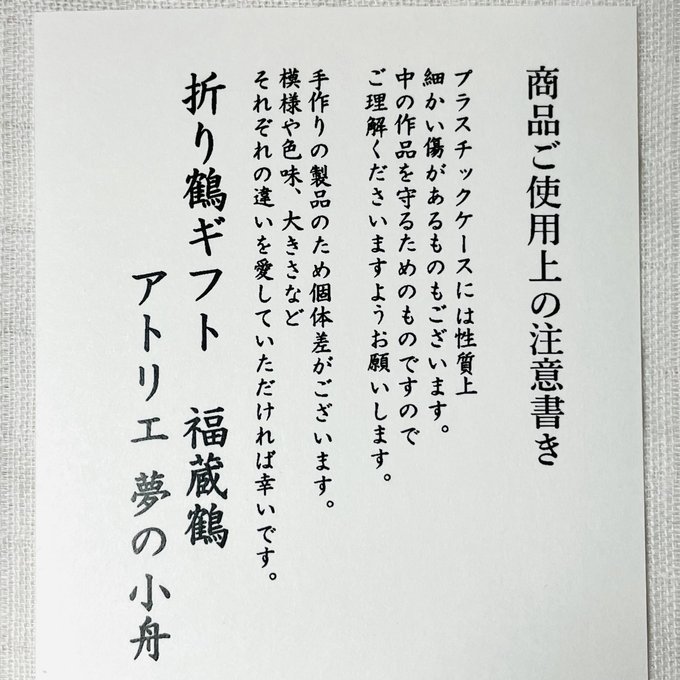 商品ご使用上の注意書き
プラスチックケースには性質上
細かい傷があるものもございます。
中の作品を守るためのものですので
ご理解くださいますようお願いします。
手作りの製品のため個体差がございます。
模様や色味、大きさなど
それぞれの違いを愛していただければ幸いです。
折り鶴ギフト 福蔵鶴
アトリエ 夢の小舟